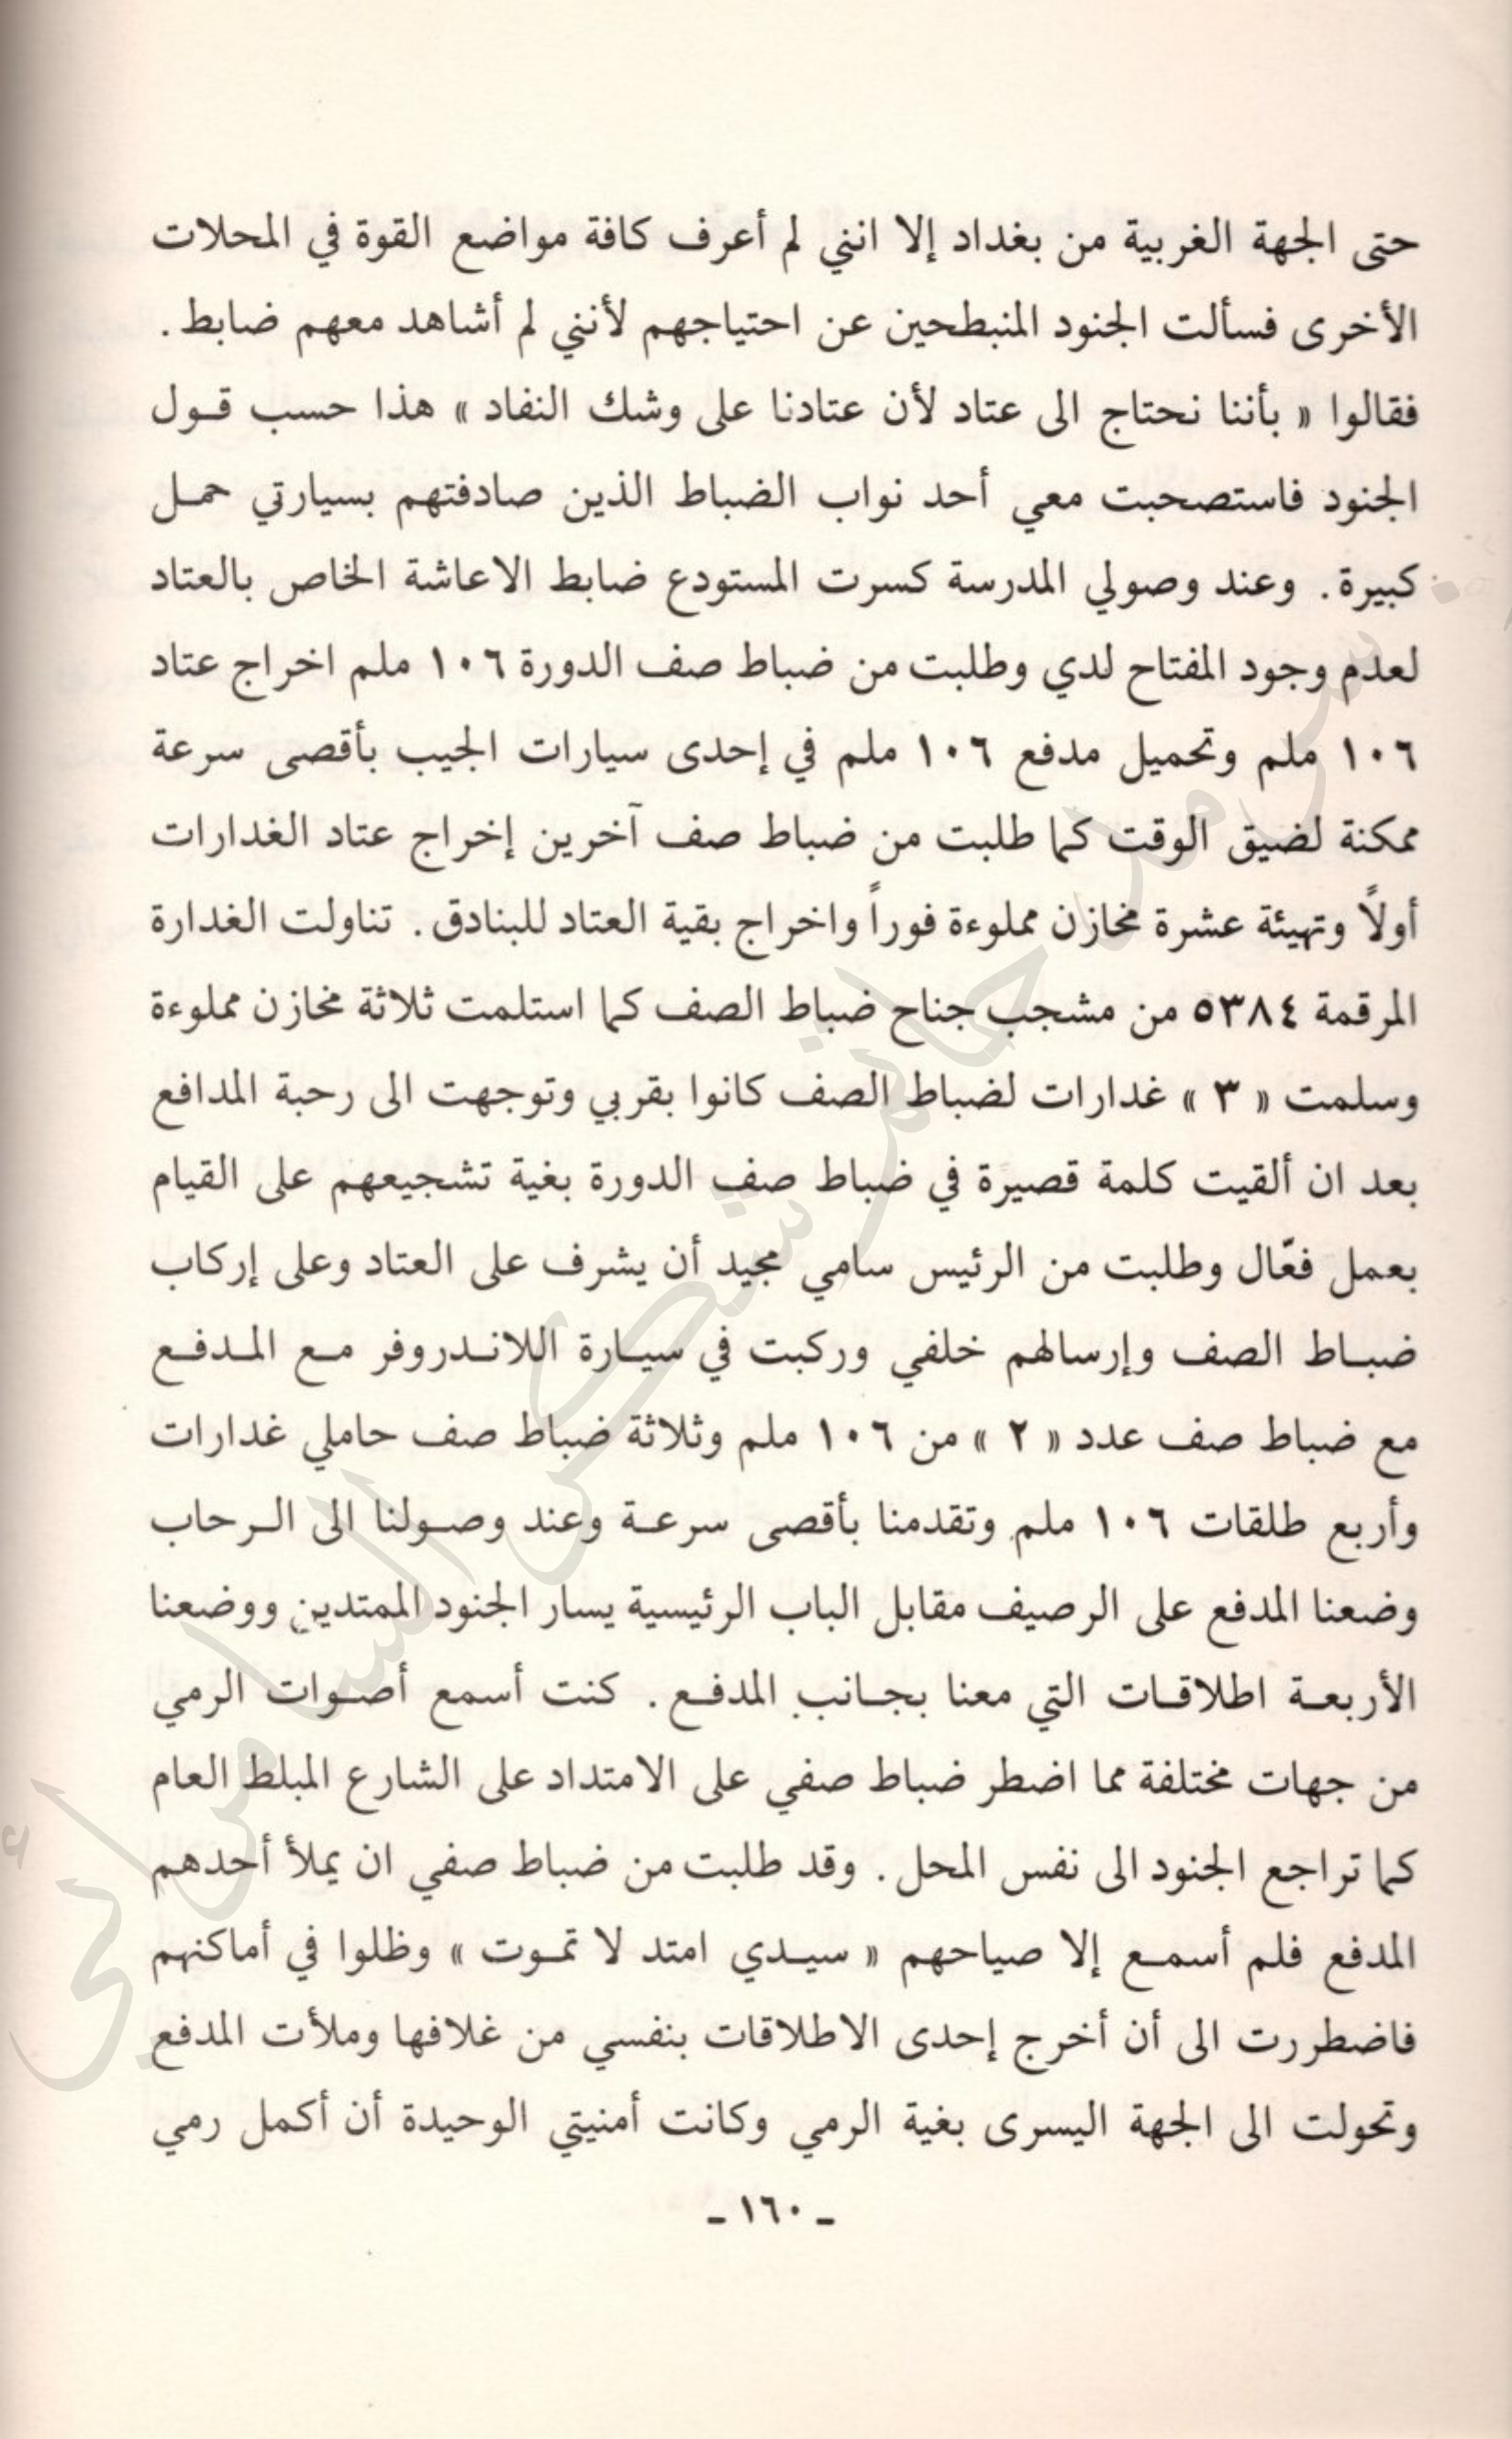 حتى الجهة الغربية من بغداد إلا انني لم أعرف كافة مواضع القوة في المحلات
الأخرى فسألت الجنود المنبطحين عن احتياجهم لأنني لم أشاهد معهم ضابط .
فقالوا « بأننا نحتاج الى عتاد لأن عتادنا على وشك النفاد » هذا حسب قول
الجنود فاستصحبت معي أحد نواب الضباط الذين صادفتهم بسيارتي حمل
كبيرة . وعند وصولي المدرسة كسرت المستودع ضابط الاعاشة الخاص بالعتاد
لعدم وجود المفتاح لدي وطلبت من ضباط صف الدورة ١٠٦ ملم اخراج عتاد
١٠٦ ملم وتحميل مدفع ١٠٦ ملم في إحدى سيارات الجيب بأقصى سرعة
ممكنة لضيق الوقت كما طلبت من ضباط صف آخرين إخراج عتاد الغدارات
أولاً وتهيئة عشرة مخازن مملوءة فوراً واخراج بقية العتاد للبنادق . تناولت الغدارة
المرقمة ٥٣٨٤ من مشجب جناح ضباط الصف كما استلمت ثلاثة مخازن مملوءة
وسلمت « ٣ » غدارات لضباط الصف كانوا بقربي وتوجهت الى رحبة المدافع
بعد ان ألقيت كلمة قصيرة في ضباط صف الدورة بغية تشجيعهم على القيام
بعمل فعّال وطلبت من الرئيس سامي مجيد أن يشرف على العتاد وعلى إركاب
ضباط الصف وإرسالهم خلفي وركبت في سيارة اللاندروفر مع المدفع
مع ضباط صف عدد « ٢ » من ١٠٦ ملم وثلاثة ضباط صف حاملي غدارات
وأربع طلقات ١٠٦ ملم وتقدمنا بأقصى سرعة وعند وصولنا الى الرحاب
وضعنا المدفع على الرصيف مقابل الباب الرئيسية يسار الجنود الممتدين ووضعنا
الأربعة اطلاقات التي معنا بجانب المدفع . كنت أسمع أصوات الرمي
من جهات مختلفة مما اضطر ضباط صفي على الامتداد على الشارع المبلط العام
كما تراجع الجنود الى نفس المحل . وقد طلبت من ضباط صفي ان يملأ أحدهم
المدفع فلم أسمع إلا صياحهم « سيدي امتد لا تموت » وظلوا في أماكنهم
فاضطررت الى أن أخرج إحدى الاطلاقات بنفسي من غلافها وملأت المدفع
وتحولت الى الجهة اليسرى بغية الرمي وكانت أمنيتي الوحيدة أن أكمل رمي
- ١٦٠ -